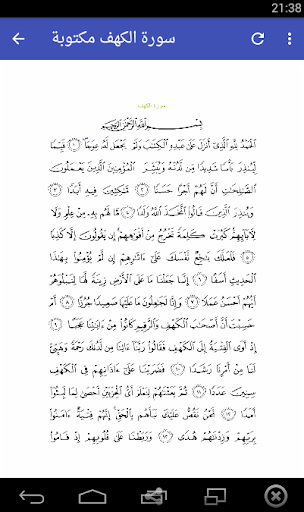 21:38
سورة الكهف مكتوبة
سورة الكهف
بسم الله الرحمن الرحيم
الحمد لله الذي أنزل على عبده الكتاب ولم يجعل له عوجا ۜ ١ قيما
لينذر بأسا شديدا من لدنه ويبشر المؤمنين الذين يعملون
الصالحات أن لهم أجرا حسنا ٢ ماكثين فيه أبدا ٣
وينذر الذين قالوا اتخذ الله ولدا ٤ ما لهم به من علم ولا
لآبائهم كبرت كلمة تخرج من أفواههم إن يقولون إلا كذبا
٥ فلعلك باخع نفسك على آثارهم إن لم يؤمنوا بهذا
الحديث أسفا ٦ إنا جعلنا ما على الأرض زينة لها لنبلوهم
أيهم أحسن عملا ٧ وإنا لجاعلون ما عليها صعيدا جرزا ٨ أم
حسبت أن أصحاب الكهف والرقيم كانوا من آياتنا عجبا ٩
إذ أوى الفتية إلى الكهف فقالوا ربنا آتنا من لدنك رحمة وهيئ
لنا من أمرنا رشدا ١٠ فضربنا على آذانهم في الكهف
سنين عددا ١١ ثم بعثناهم لنعلم أي الحزبين أحصى لما لبثوا
أمدا ١٢ نحن نقص عليك نبأهم بالحق إنهم فتية آمنوا
بربهم وزدناهم هدى ١٣ وربطنا على قلوبهم إذ قاموا